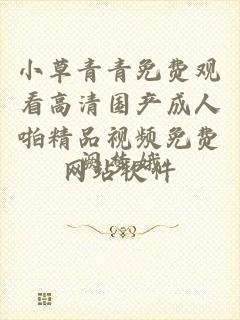 小草青青免费观
看高清国产成人
啪精品视频免费
网站软件